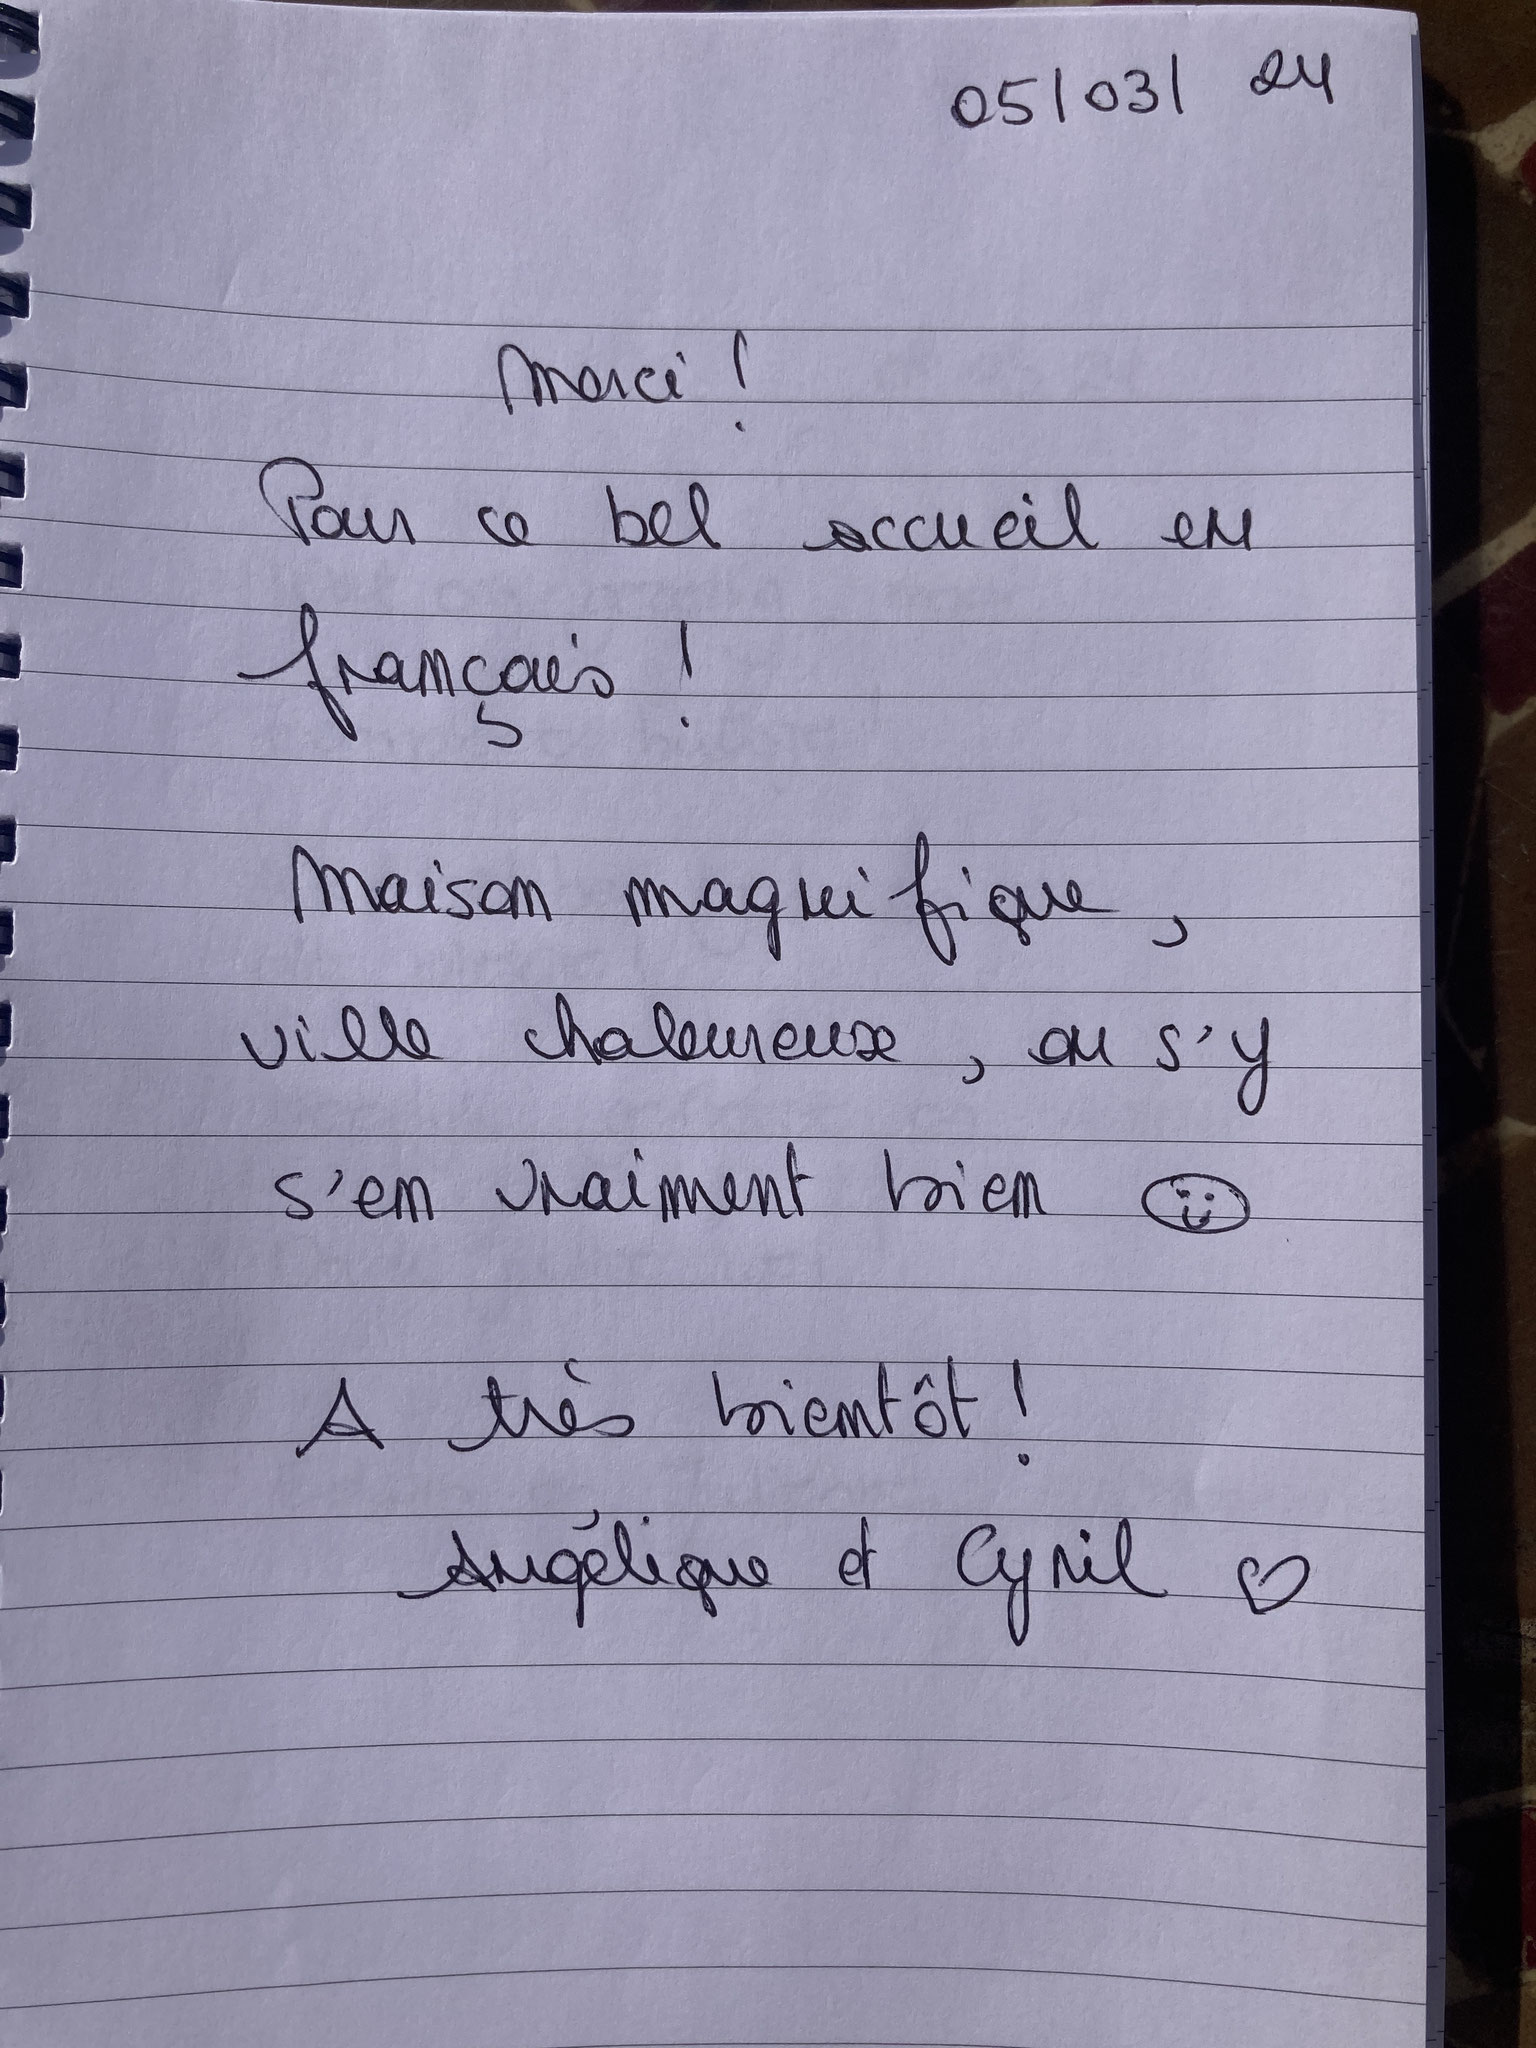 05/03/ 24
Merci !
Pour ce bel accueil en
français !
Maison magnifique,
ville chaleureuse, on s'y
s'en vraiment bien
A très bientôt !
Angélique et Cyril ♡